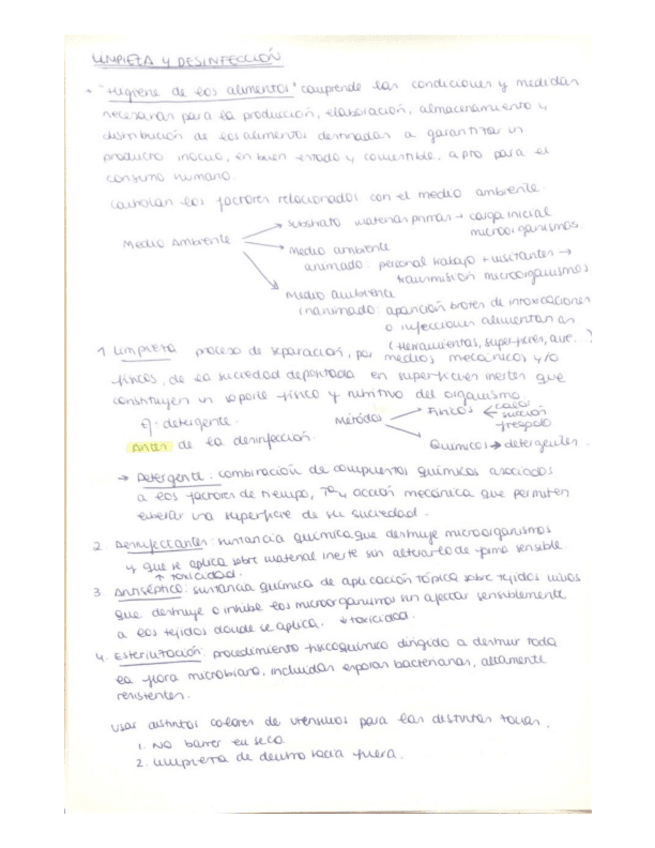 LIMPIEZA Y DESINFECCIÓN
• "Higiene de los alimentos" comprende las condiciones y medidas
necesarias para la producción, elaboración, almacenamiento y
distribución de los alimentos destinadas a garantizar un
producto inocuo, en buen estado y comestible, apto para el
consumo humano.
Controlan los factores relacionados con el medio ambiente.
Medio Ambiente
→ Sustrato materias primas → carga inicial
microorganismos
→ Medio ambiente
animado: personal trabajo + visitantes →
transmisión microorganismos
→ Medio ambiente
inanimado: aparición brotes de intoxicaciones
o infecciones alimentarias
(Herramientas, superficies, aire...)
1. Limpieza proceso de separación, por medios mecánicos y/o
físicos, de la suciedad depositada en superficies inertes que
constituyen un soporte físico y nutritivo del organismo.
Ej: detergente.
Métodos → Físicos ← calor
succión
fregado
Antes de la desinfección.
Químicos → detergentes.
→ Detergente: combinación de compuestos químicos asociados
a los factores de tiempo, Tª y acción mecánica que permiten
liberar una superficie de su suciedad.
2. Desinfectantes: sustancia química que destruye microorganismos
y que se aplica sobre material inerte sin alterarlo de forma sensible.
↑ toxicidad.
3. Antiséptico: sustancia química de aplicación tópica sobre tejidos vivos
que destruye o inhibe los microorganismos sin afectar sensiblemente
a los tejidos donde se aplica. ↓ toxicidad.
4. Esterilización: procedimiento fisicoquímico dirigido a destruir toda
la flora microbiana, incluidas esporas bacterianas, altamente
resistentes.
Usar distintos colores de utensilios para las distintas zonas.
1. No barrer en seco
2. Limpieza de dentro hacia fuera.